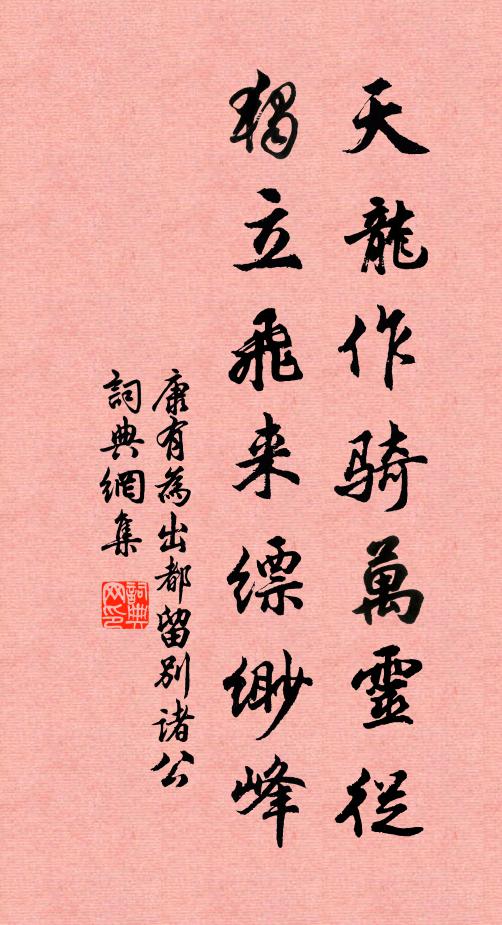 天龍作騎萬靈從
獨立飛來縹緲峰
康有為出都留別諸公
詞典網集
詞典网印